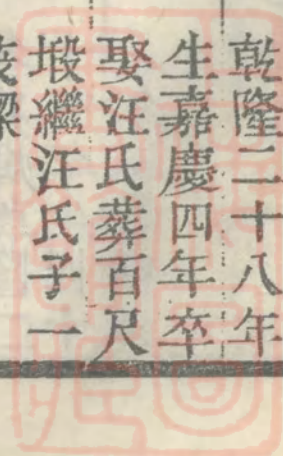 乾隆二十八年
生嘉慶四年卒
娶汪氏葬百尺
塅繼汪氏子一
茂樑